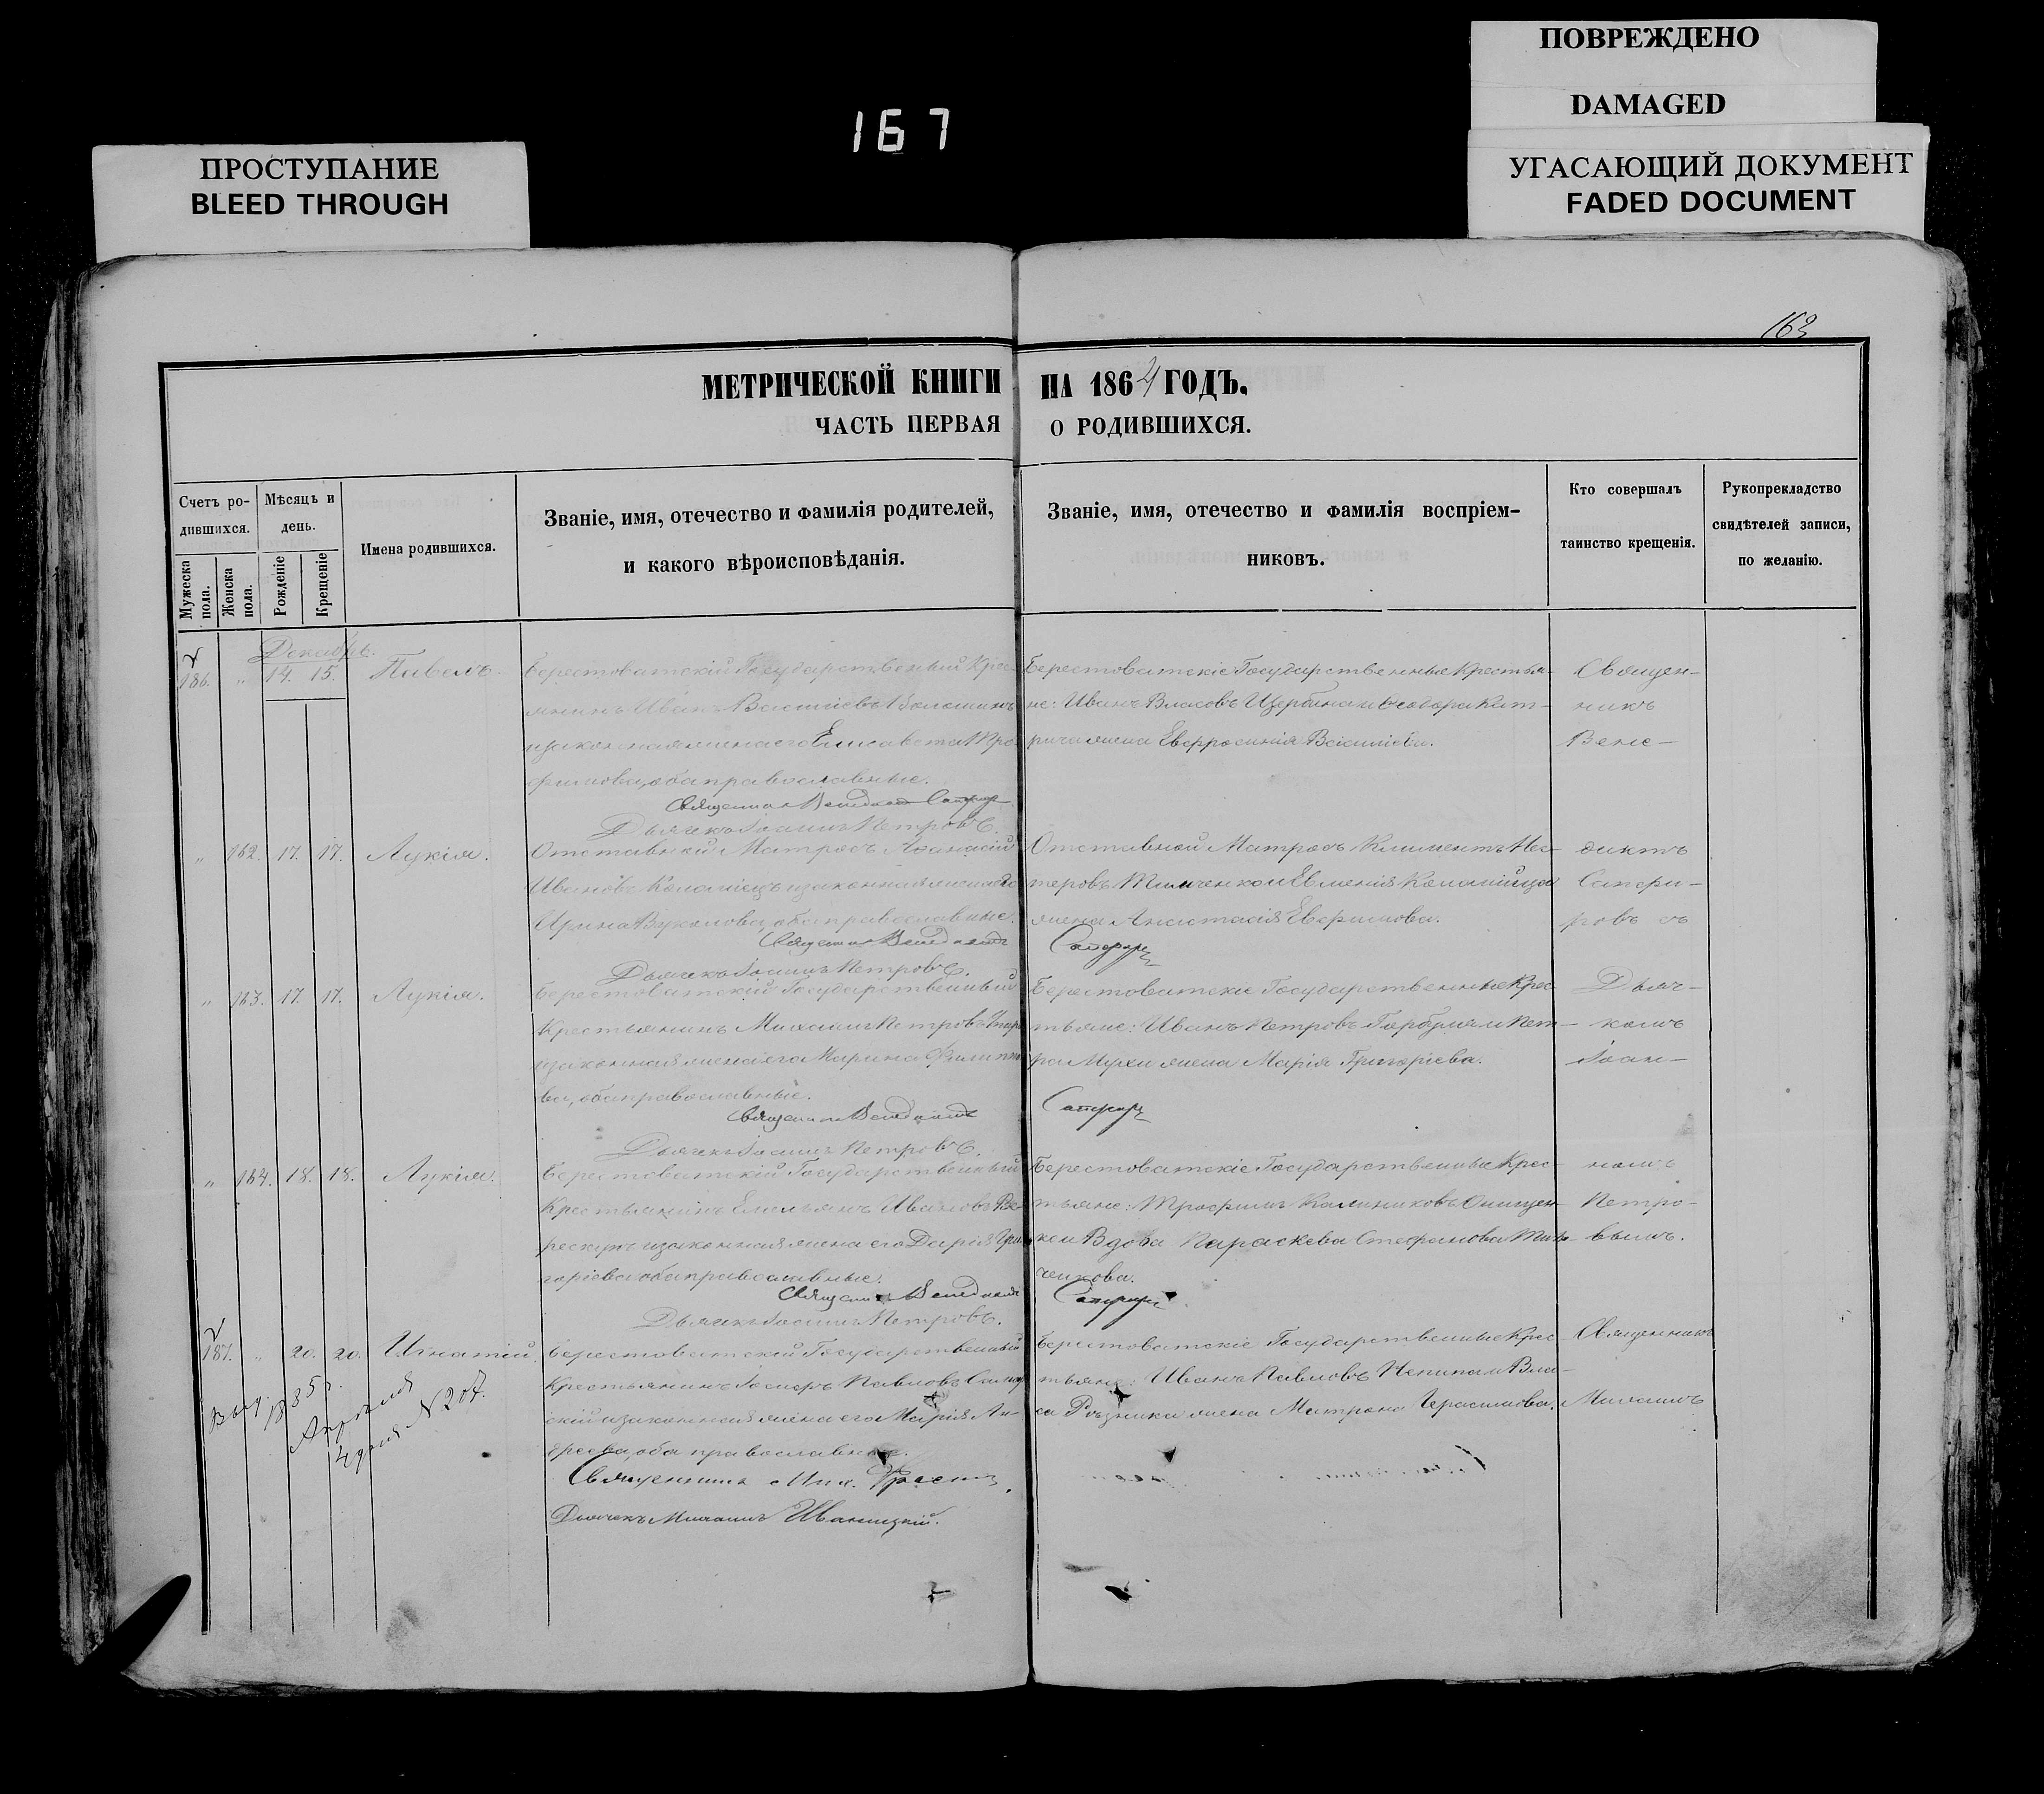 ПОВРЕЖДЕНО
DAMAGED
УГАСАЮЩИЙ ДОКУМЕНТ
FADED DOCUMENT
ПРОСТУПАНИЕ
BLEED THROUGH
167
163
МЕТРИЧЕСКОЙ КНИГИ НА 1864 ГОДЪ.
ЧАСТЬ ПЕРВАЯ О РОДИВШИХСЯ.
Счетъ ро-
дившихся.
Мужеска пола.
Женска пола.
Мѣсяцъ и
день.
Рожденіе
Крещеніе
Имена родившихся.
Званіе, имя, отечество и фамилія родителей,
и какого вѣроисповѣданія.
Званіе, имя, отечество и фамилія воспріем-
никовъ.
Кто совершалъ
таинство крещенія.
Рукопрекладство
свидѣтелей записи,
по желанію.
Декабрь.
186. " 14. 15. Павелъ.
Берестоватскій Государственный Крес-
янинъ Иванъ Василіевъ
изаконная жена его Елисавета Тро-
фимова, оба православные.
Священник Венедикт Сапфир
Дьячекъ Іоаннъ Петровъ.
Берестоватскіе Государственные Крестья-
не: Иванъ Власовъ Щербина и Ѳеодора
жена Евфросинія Василіева.
Священ-
никъ
Вене-
" 162. 17. 17. Лукія.
Отставный Матросъ Аѳанасій
Ивановъ Коломіецъ изаконная жена его
Ирина Вуколова, оба православные.
Священник Венедиктъ
Дьячекъ Іоаннъ Петровъ.
Отставной Матросъ Климентъ Нес-
теровъ Тимченко и Евменія Коломійца
жена Анастасія Евфимова.
Сапфир
диктъ
Сапфи-
ровъ съ
" 163. 17. 17. Лукія.
Берестоватскій Государственный
Крестьянинъ Михаилъ Петровъ
изаконная жена его Марина Филиппо
ва, оба православные.
Священник Венедиктъ
Дьячекъ Іоаннъ Петровъ.
Берестоватскіе Государственные Крес
тьяне: Иванъ Петровъ Горбуля и Пет-
ра Мухи жена Марія Григоріева.
Сапфир
Дьяч-
комъ
Іоан-
" 164. 18. 18. Лукія.
Берестоватскій Государственный
Крестьянинъ Емельянъ Ивановъ
изаконная жена его Дарія Гри
горіева оба православные.
Священник Венедиктъ
Дьячекъ Іоаннъ Петровъ.
Берестоватскіе Государственные Крес-
тьяне: Трофимъ Калиниковъ Онищен-
ко и Вдова Параскева Стефанова Тим-
ченкова.
Сапфир
номъ
Петро-
вымъ.
187. " 20. 20. Игнатій.
Выд. 1885 г.
Апрѣля
4 дня N 207.
Берестоватскій Государственный
Крестьянинъ Іосифъ Павловъ
скій изаконная жена его Марія Ан-
дреева, оба православные.
Священникъ Мих.
Дьячекъ Михаилъ Иваницкій.
Берестоватскіе Государственные Крес
тьяне: Иванъ Павловъ Непипа и Вла-
са Рѣзника жена Матрона Герасимова.
Священникъ
Михаилъ